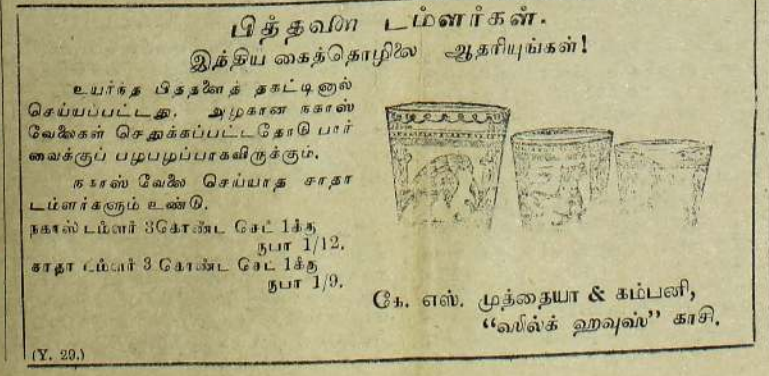 பித்தளை டம்ளர்கள்.
இந்திய கைத்தொழிலை ஆதரியுங்கள்!
உயர்ந்த பித்தளைத் தகட்டினால்
செய்யப்பட்டது. அழகான நகாஸ்
வேலைகள் செதுக்கப்பட்டதோடு பார்
வைக்குப் பழபழப்பாகவிருக்கும்.
நகாஸ் வேலை செய்யாத சாதா
டம்ளர்களும் உண்டு.
நகாஸ் டம்ளர் 3 கொண்ட செட் 1க்கு
ரூபா 1/12.
சாதா டம்ளர் 3 கொண்ட செட் 1க்கு
ரூபா 1/9.
கே. எஸ். முத்தையா & கம்பனி,
“ஸில்க் ஹவுஸ்” காசி.
(Y. 29.)